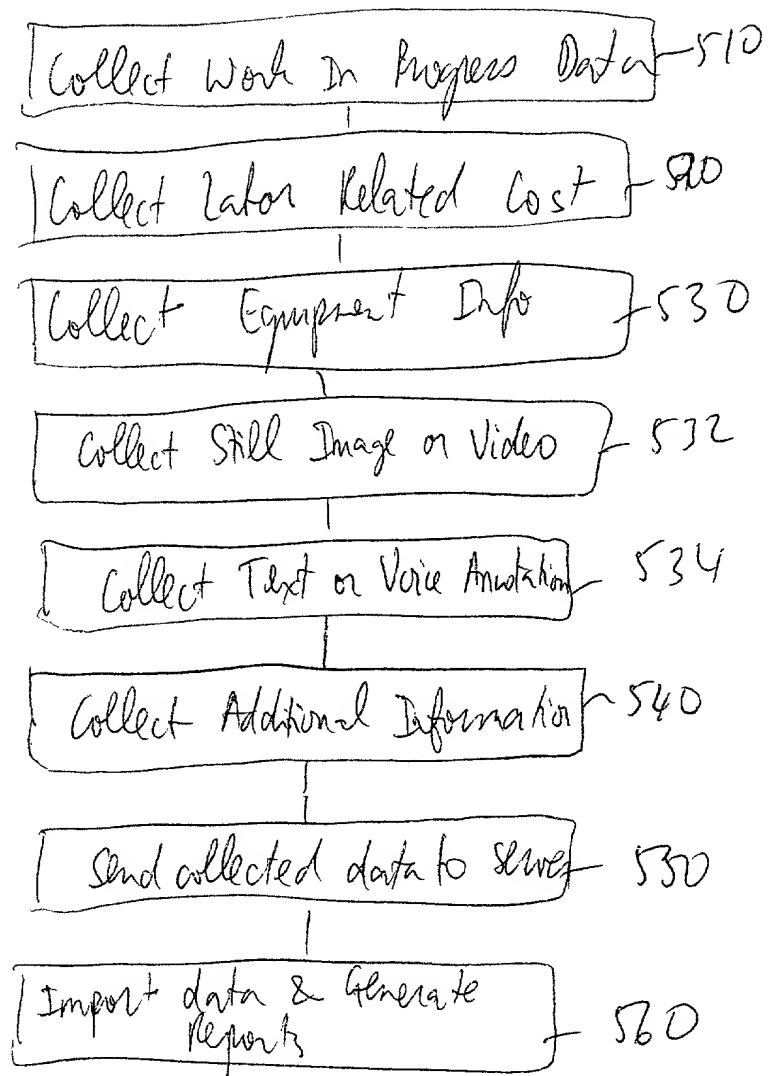 Collect Work In Progress Data 510
Collect Labor Related Cost 520
Collect Equipment Info 530
Collect Still Image or Video 532
Collect Text or Voice Anotation 534
Collect Additional Information 540
Send collected data to server 550
Import data & Generate
Reports 560